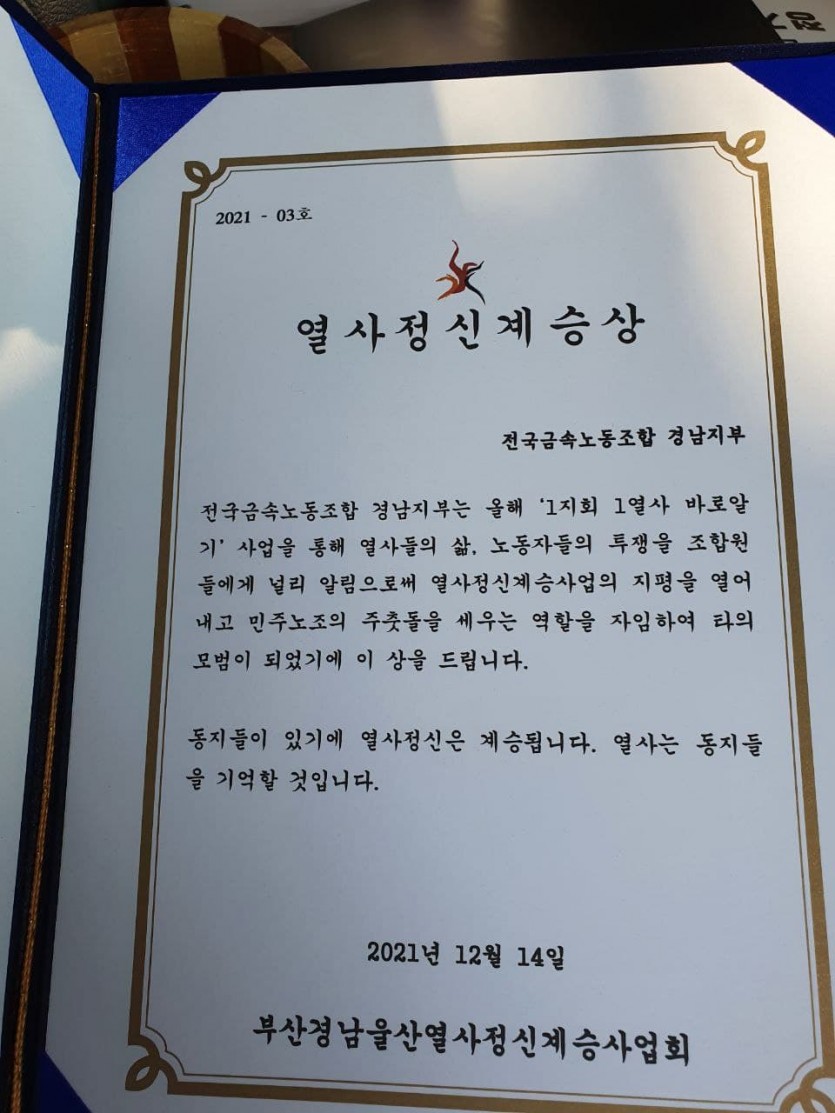 2021 - 03호
열사정신계승상
전국금속노동조합 경남지부
전국금속노동조합 경남지부는 올해 '1지회 1열사 바로알
기' 사업을 통해 열사들의 삶, 노동자들의 투쟁을 조합원
들에게 널리 알림으로써 열사정신계승사업의 지평을 열어
내고 민주노조의 주춧돌을 세우는 역할을 자임하여 타의
모범이 되었기에 이 상을 드립니다.
동지들이 있기에 열사정신은 계승됩니다. 열사는 동지들
을 기억할 것입니다.
2021년 12월 14일
부산경남울산열사정신계승사업회